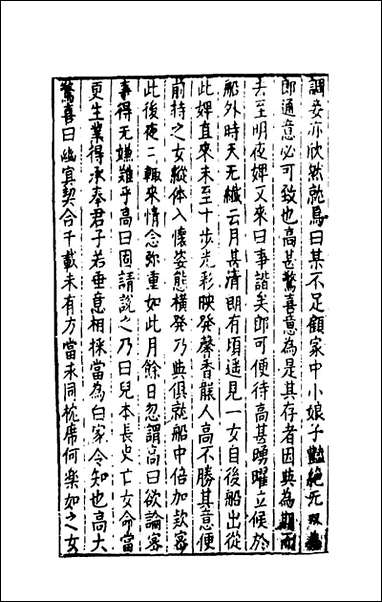 調妾亦欣然就焉曰某不足顧家中小娘子艷絶无双為
郎通意必可致也高甚驚喜意為是其存者因與為期而
去至明夜婢又来曰事諧矣郎可便待高甚踴曜立候於
船外時天无纎云月甚清朗有頃遥見一女自後船出從
此婢直来未至十步光彩映発馨香襲人高不勝其意便
前持之女縦体入懐姿態横発乃與俱就船中倍加欵密
此後夜二輒来情念弥重如此月餘日忽謂高曰欲論密
事得无嫌難乎高曰固請說之乃曰兒本長史亡女命當
更生業得承奉君子若垂意相採當為白家令知也高大
驚喜曰幽宜契合千載未有方當未同枕席何楽如之女